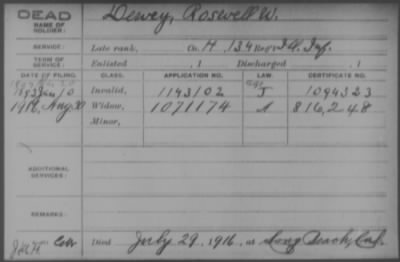 DEAD
NAME OF SOLDIER:
Dewey, Roswell W.
SERVICE:
Late rank, Co. H, 134 Reg't Ill. Inf.
TERM OF SERVICE:
Enlisted , 1 Discharged , 1
DATE OF FILING. CLASS. APPLICATION NO. LAW. CERTIFICATE NO.
1893 Jan 10 Invalid, 1143102 J 1094323
1916, Aug 30 Widow, 1071174 A 816,248
Minor,
ADDITIONAL SERVICES:
REMARKS:
Died July 29, 1916, at Long Beach, Cal.